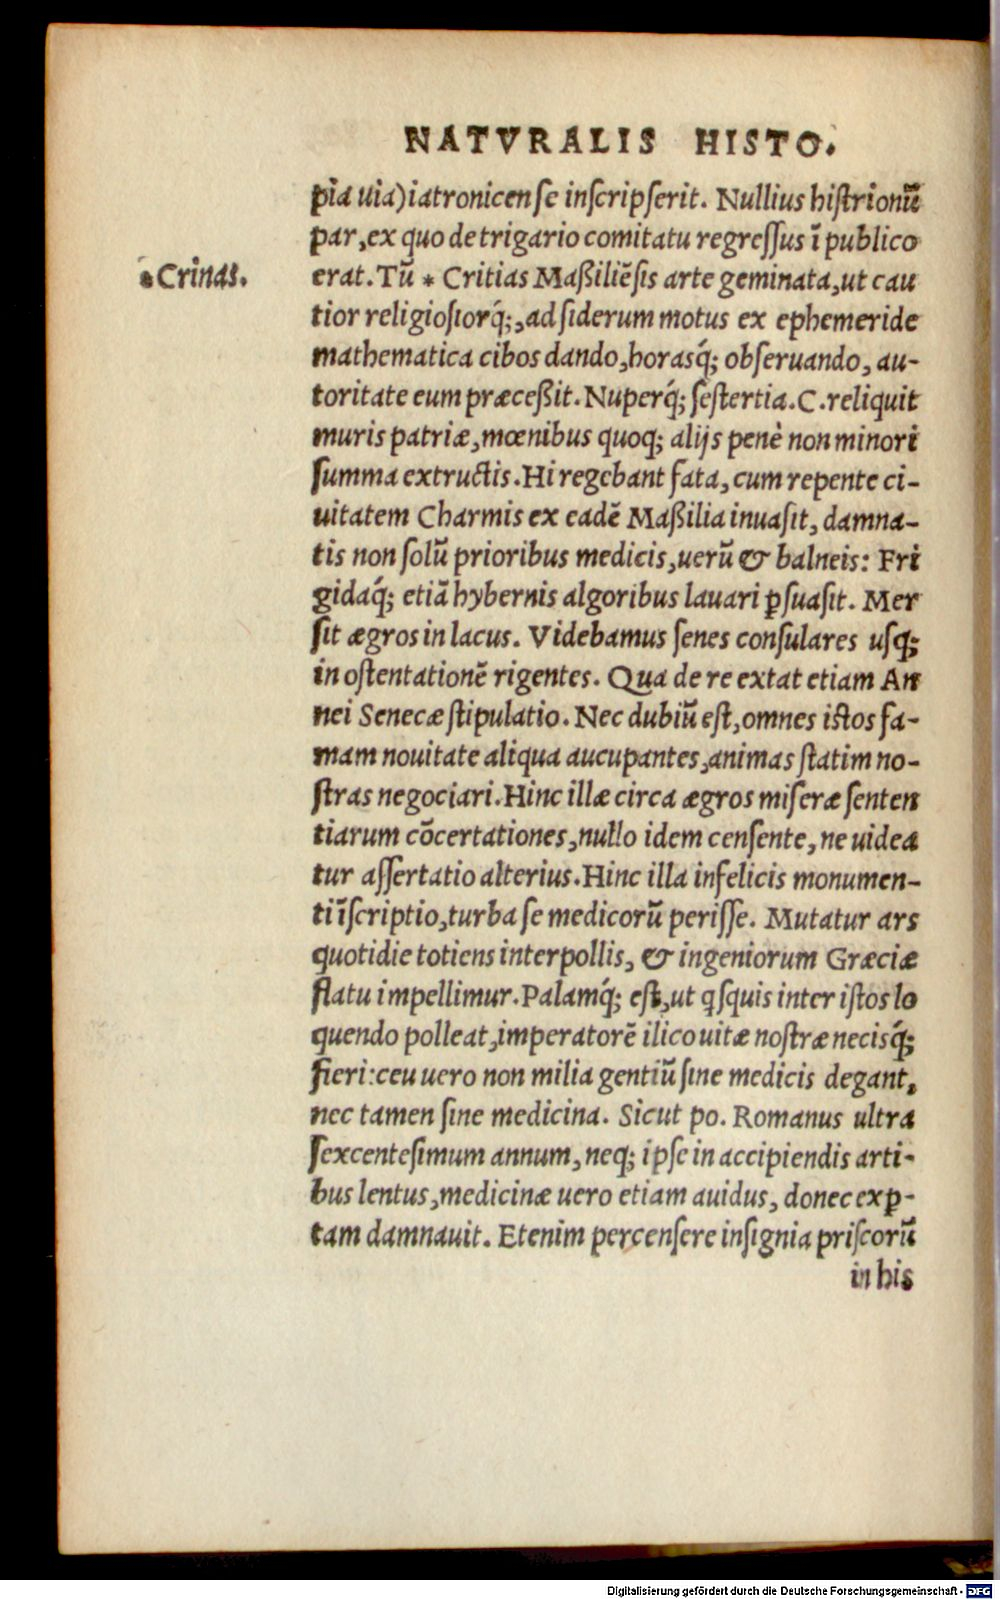 NATVRALIS HISTO.
pia uia) iatronicen se inscripserit. Nullius histrionũ
par, ex quo de trigario comitatu regressus ĩ publico
*Crinas.
erat. Tũ * Critias Maßiliẽsis arte geminata, ut cau
tior religiosiorq́;, ad siderum motus ex ephemeride
mathematica cibos dando, horasq́; obseruando, au-
toritate eum præceßit. Nuperq́; sestertia. C. reliquit
muris patriæ, mœnibus quoq; alijs penè non minori
summa extructis. Hi regebant fata, cum repente ci-
uitatem Charmis ex eadẽ Maßilia inuasit, damna-
tis non solũ prioribus medicis, uerũ & balneis: Fri
gidaq́; etiã hybernis algoribus lauari ꝑsuasit. Mer
sit ægros in lacus. Videbamus senes consulares usq;
in ostentationẽ rigentes. Qua de re extat etiam An
nei Senecæ stipulatio. Nec dubiũ est, omnes istos fa-
mam nouitate aliqua aucupantes, animas statim no-
stras negociari. Hinc illæ circa ægros miseræ senten
tiarum cõcertationes, nullo idem censente, ne uidea
tur assertatio alterius. Hinc illa infelicis monumen-
ti ĩscriptio, turba se medicorũ perisse. Mutatur ars
quotidie totiens interpollis, & ingeniorum Græciæ
flatu impellimur. Palamq́; est, ut q̃squis inter istos lo
quendo polleat, imperatorẽ ilico uitæ nostræ necisq́;
fieri: ceu uero non milia gentiũ sine medicis degant,
nec tamen sine medicina. Sicut po. Romanus ultra
sexcentesimum annum, neq; ipse in accipiendis arti-
bus lentus, medicinæ uero etiam auidus, donec exꝑ-
tam damnauit. Etenim percensere insignia priscorũ
in his
Digitalisierung gefördert durch die Deutsche Forschungsgemeinschaft - DFG